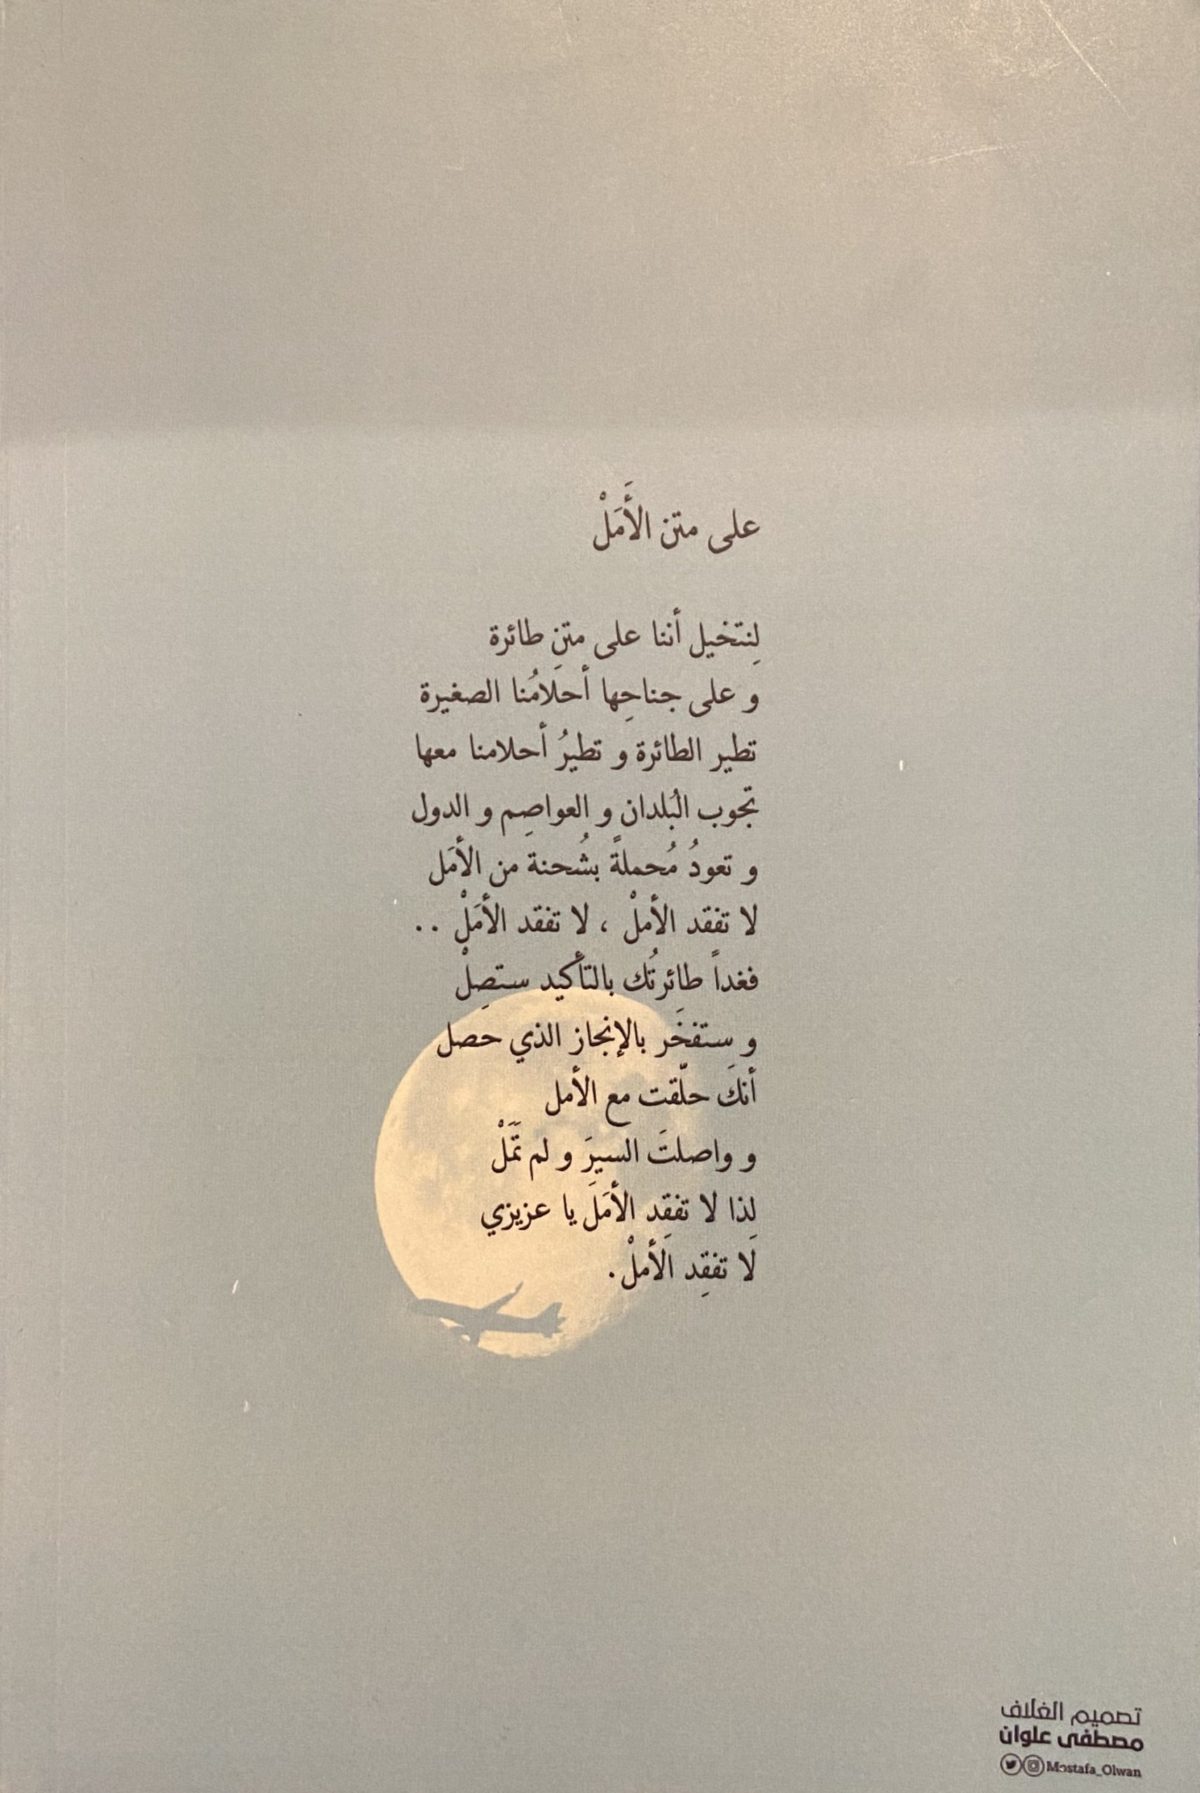 على متن الأَمَلْ
لِنتخيل أننا على متنِ طائرة
و على جناحِها أحلامُنا الصغيرة
تطير الطائرة و تطيرُ أحلامنا معها
تجوب البُلدان و العواصِم و الدول
و تعودُ مُحملةً بشُحنة من الأمَل
لا تفقد الأملْ ، لا تفقد الأمَلْ ..
فغداً طائرتُك بالتأكيد ستصِلْ
و ستفخَر بالإنجاز الذي حصل
أنكَ حلّقت مع الأمل
و واصلتَ السيرَ و لم تَمَلْ
لِذا لا تفقِد الأمَلَ يا عزيزي
لَا تفقِد الأملْ.
تصميم الغلاف
مصطفى علوان
Mostafa_Olwan